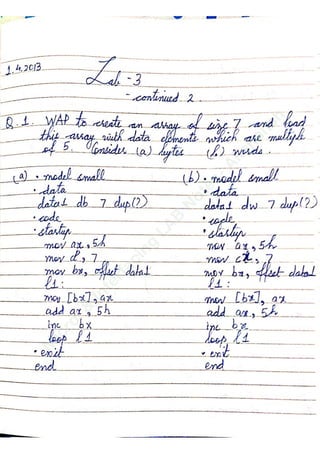 1.4.2013
Lab - 3
- continued 2.
Q.1. WAP to create an array of size 7 and load
this array with data elements which are multiple
of 5. Consider (a) bytes (b) words.
(a) .model small
.data
data1 db 7 dup(?)
.code
.startup
mov ax, 5h
mov cl, 7
mov bx, offset data1
l1:
mov [bx], ax
add ax, 5h
inc bx
loop l1
.exit
end
(b) .model small
.data
data1 dw 7 dup(?)
.code
.startup
mov ax, 5h
mov cl, 7
mov bx, offset data1
l1:
mov [bx], ax
add ax, 5h
inc bx
loop l1
.exit
end